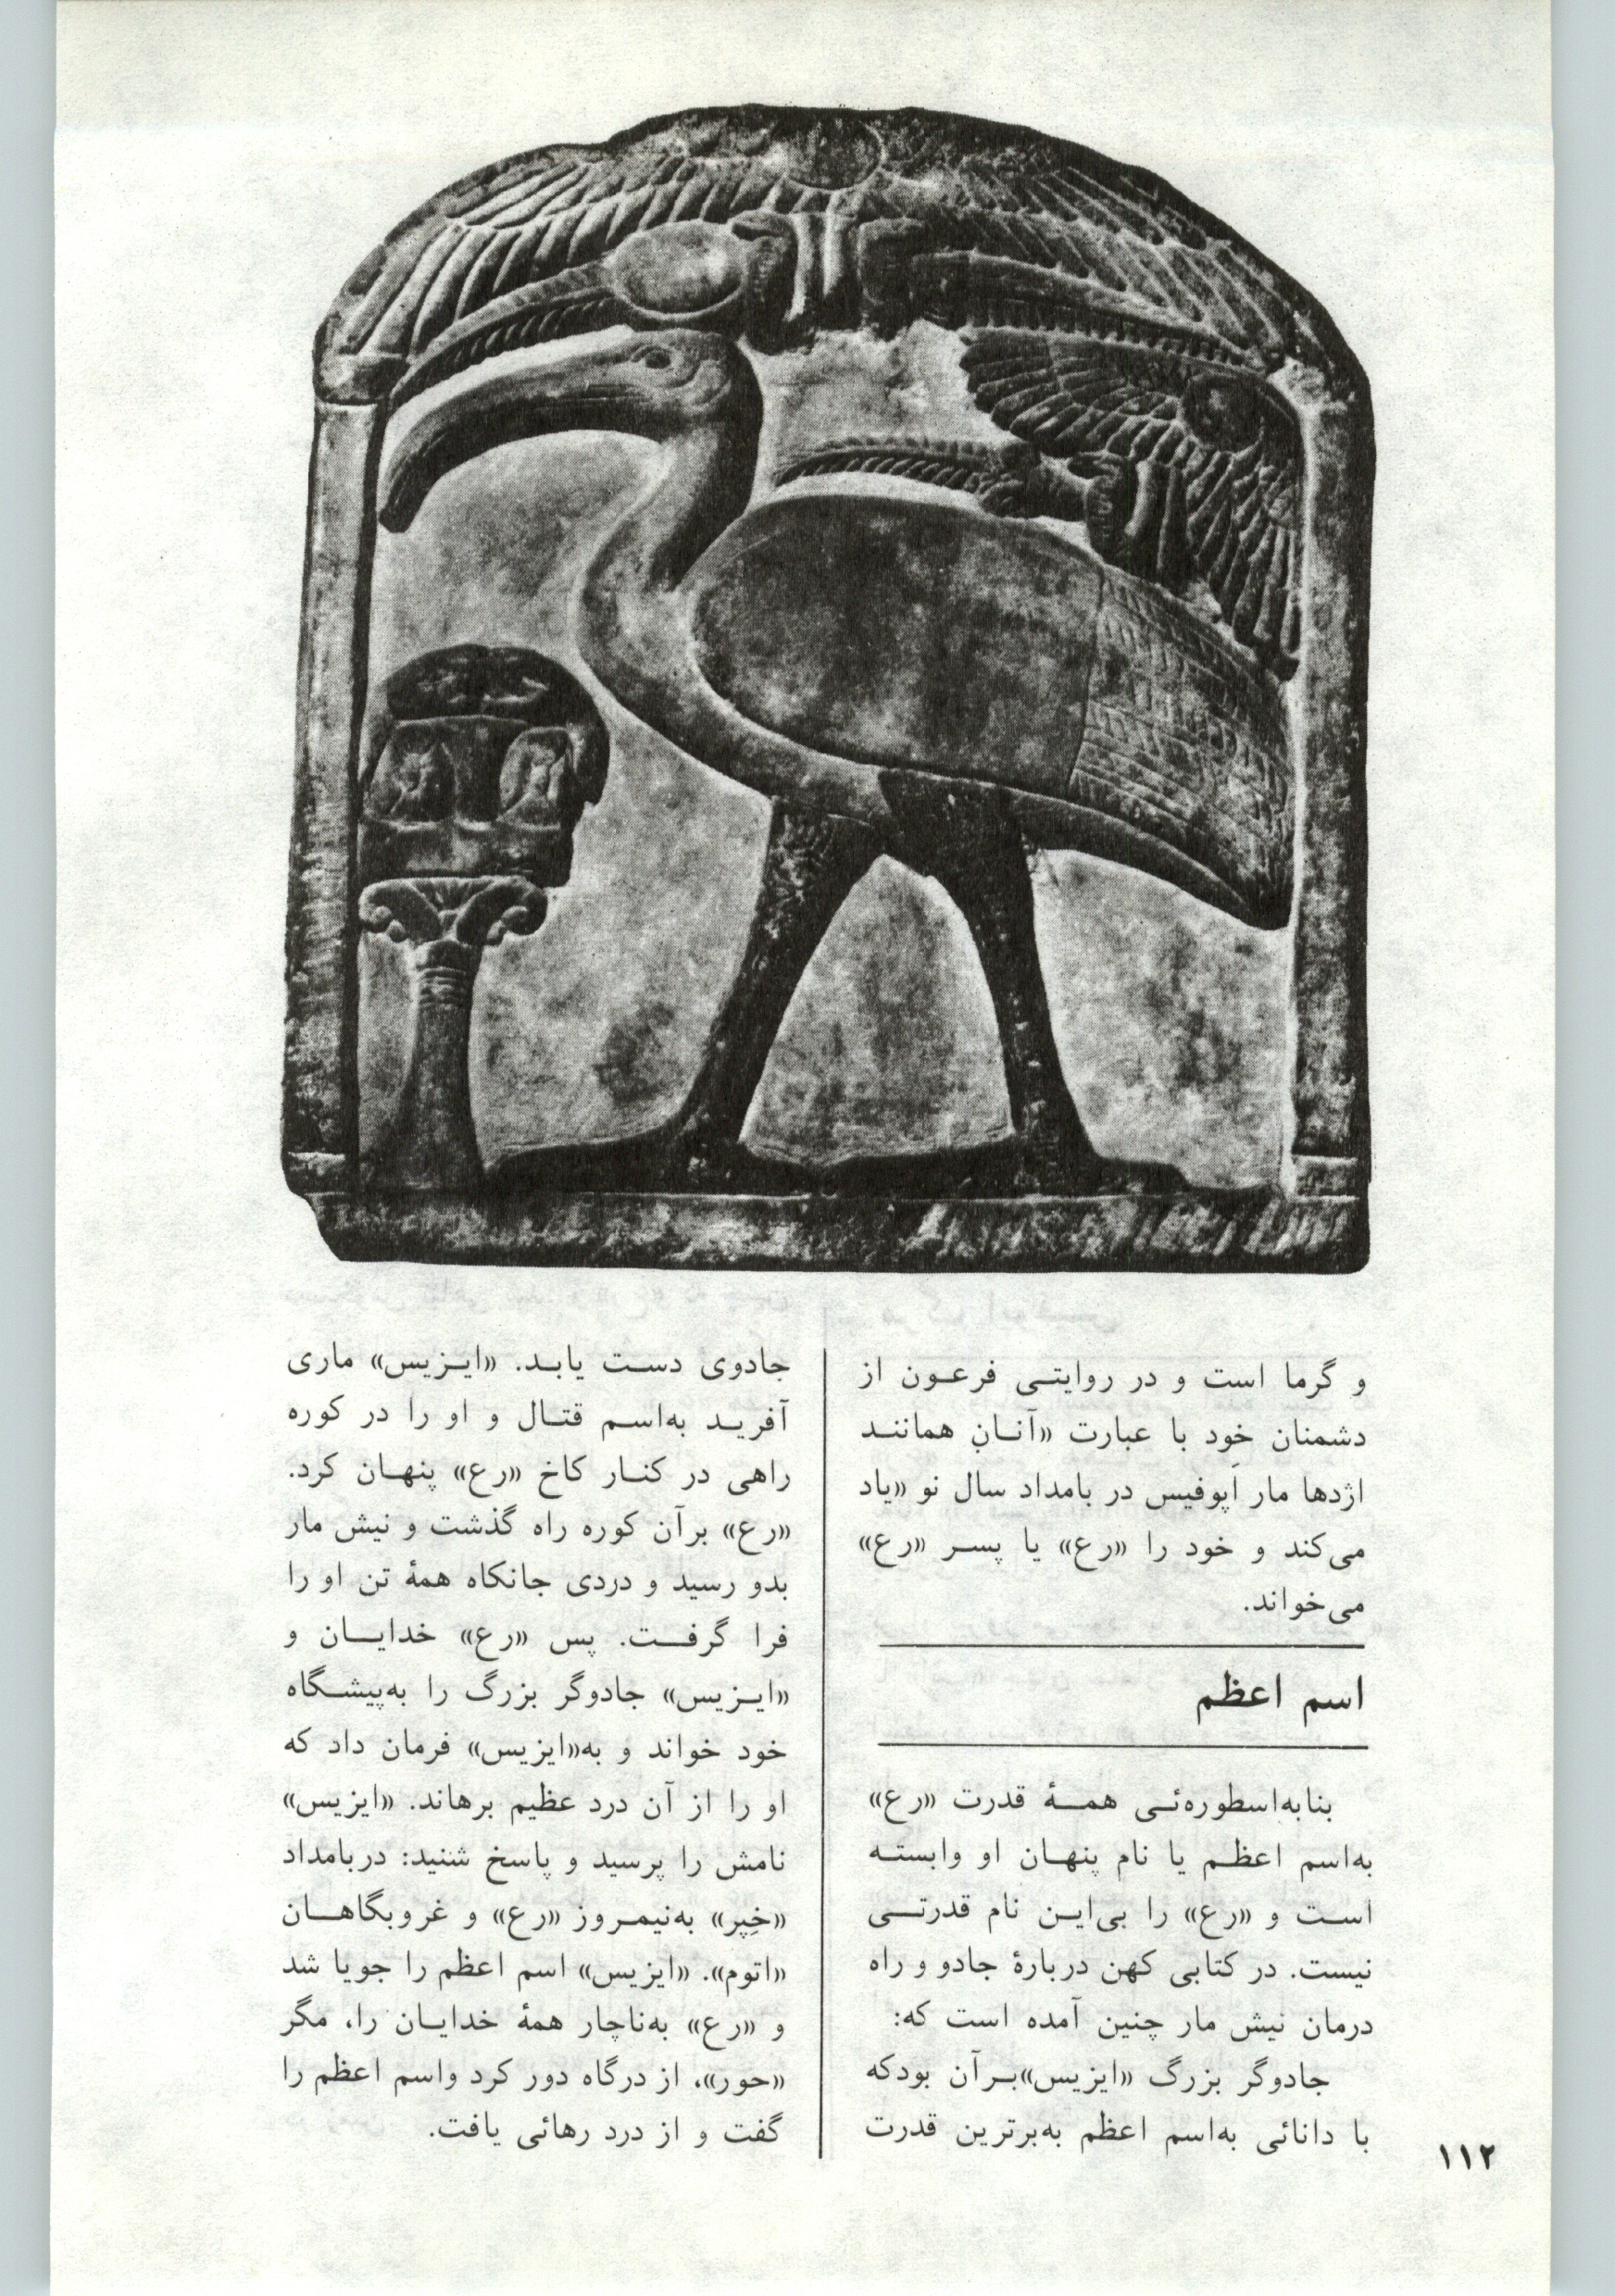 و گرما است و در روایتی فرعون از
دشمنان خود با عبارت «آنان همانند
اژدها مار اَپوفیس در بامداد سال نو «یاد
می‌کند و خود را «رع» یا پسر «رع»
می‌خواند.
اسم اعظم
بنابه‌اسطوره‌ئی همهٔ قدرت «رع»
به‌اسم اعظم یا نام پنهان او وابسته
است و «رع» را بی‌این نام قدرتی
نیست. در کتابی کهن دربارهٔ جادو و راه
درمان نیش مار چنین آمده است که:
جادوگر بزرگ «ایزیس»برآن بودکه
با دانائی به‌اسم اعظم به‌برترین قدرت
جادوی دست یابد. «ایزیس» ماری
آفرید به‌اسم قتال و او را در کوره
راهی در کنار کاخ «رع» پنهان کرد.
«رع» برآن کوره راه گذشت و نیش مار
بدو رسید و دردی جانکاه همهٔ تن او را
فرا گرفت. پس «رع» خدایان و
«ایزیس» جادوگر بزرگ را به‌پیشگاه
خود خواند و به«ایزیس» فرمان داد که
او را از آن درد عظیم برهاند. «ایزیس»
نامش را پرسید و پاسخ شنید: دربامداد
«خِپر» به‌نیمروز «رع» و غروبگاهان
«اتوم». «ایزیس» اسم اعظم را جویا شد
و «رع» به‌ناچار همهٔ خدایان را، مگر
«حور»، از درگاه دور کرد واسم اعظم را
گفت و از درد رهائی یافت.
۱۱۲